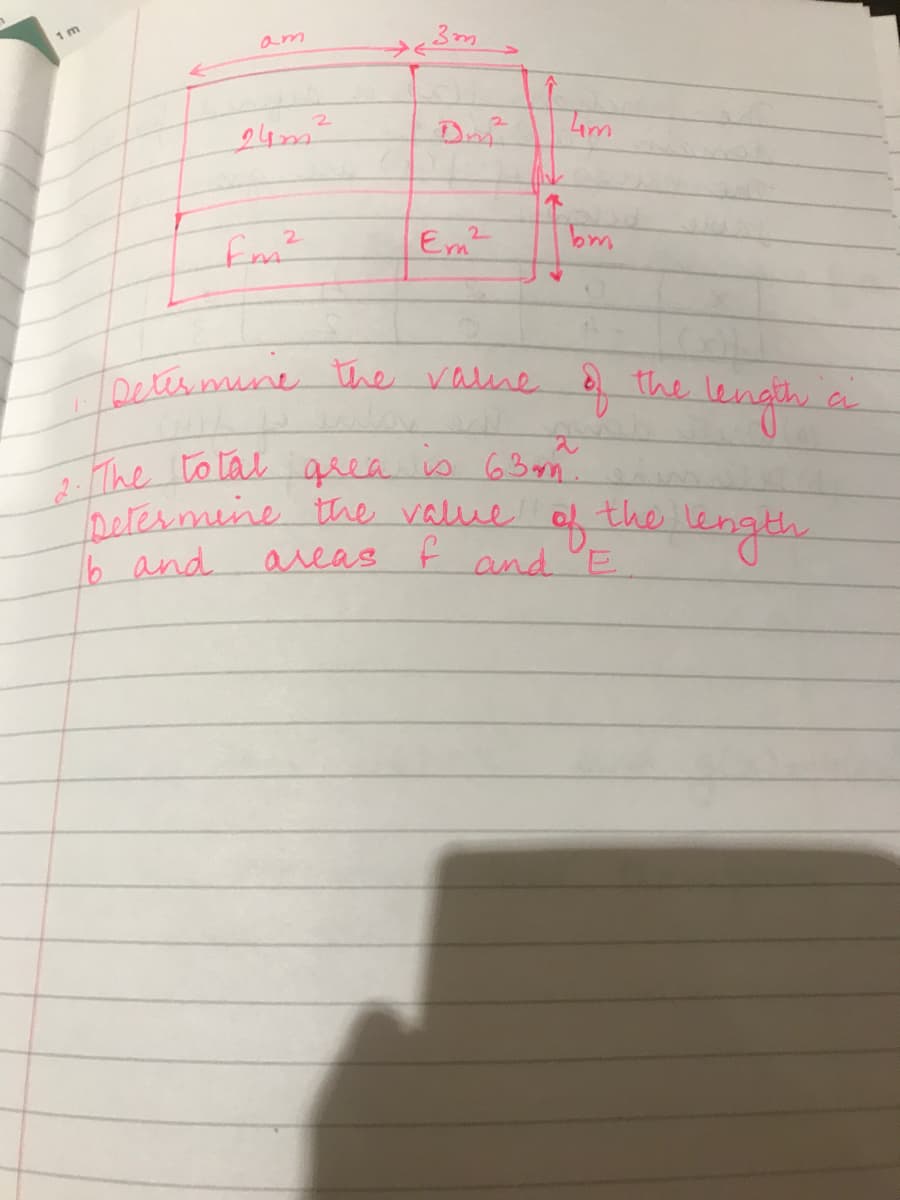 1 m
am 3m
24m² Dm² 4m
fm² Em² bm
1. Determine the value of the length a
2. The total area is 63m².
Determine the value of the length
b and areas f and E.